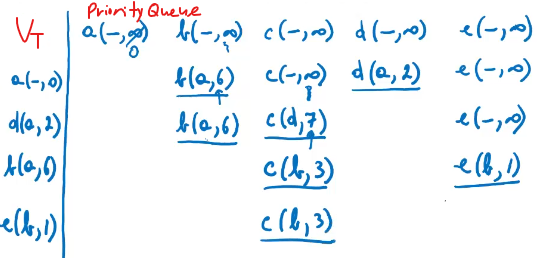 Priority Queue
V_T a(-,∞) b(-,∞) c(-,∞) d(-,∞) e(-,∞)
0
a(-,0) b(a,6) c(-,∞) d(a,2) e(-,∞)
d(a,2) b(a,6) c(d,7) e(-,∞)
b(a,6) c(b,3) e(b,1)
e(b,1) c(b,3)